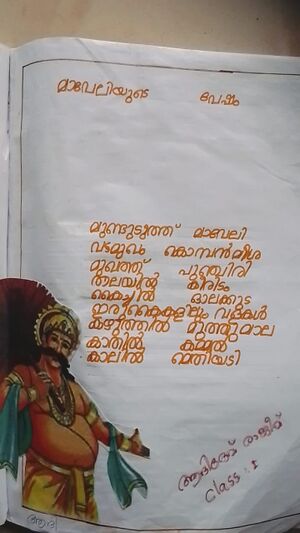 മാവേലിയുടെ വേഷം
മുണ്ടുടുത്ത് മാവേലി
വട്ടമുഖം കൊമ്പൻമീശ
മുഖത്ത് പുഞ്ചിരി
തലയിൽ കിരീടം
കൈയ്യിൽ ഓലക്കുട
ഇരു കൈകളിലും വളകൾ
കഴുത്തിൽ മുത്തുമാല
കാതിൽ കമ്മൽ
കാലിൽ മെതിയടി
Class : I
ആദി